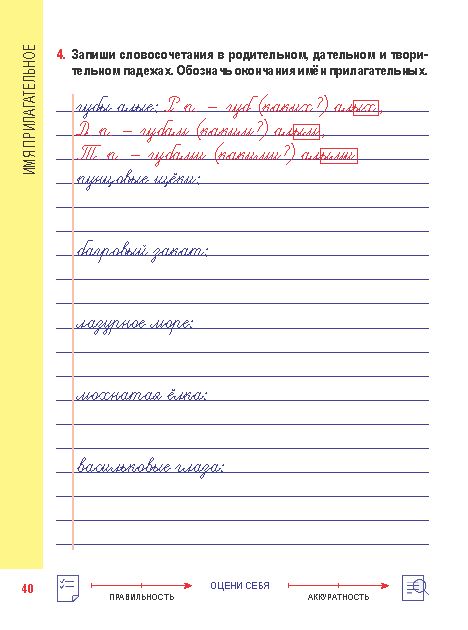 ИМЯ ПРИЛАГАТЕЛЬНОЕ
4. Запиши словосочетания в родительном, дательном и твори-
тельном падежах. Обозначь окончания имён прилагательных.
губы алые: Р п – губ (каких?) алых,
Д п – губам (каким?) алым,
Т п – губами (какими?) алыми
пунцовые щёки:
багровый закат:
лазурное море:
мохнатая ёлка:
васильковые глаза:
40
ПРАВИЛЬНОСТЬ
ОЦЕНИ СЕБЯ
АККУРАТНОСТЬ